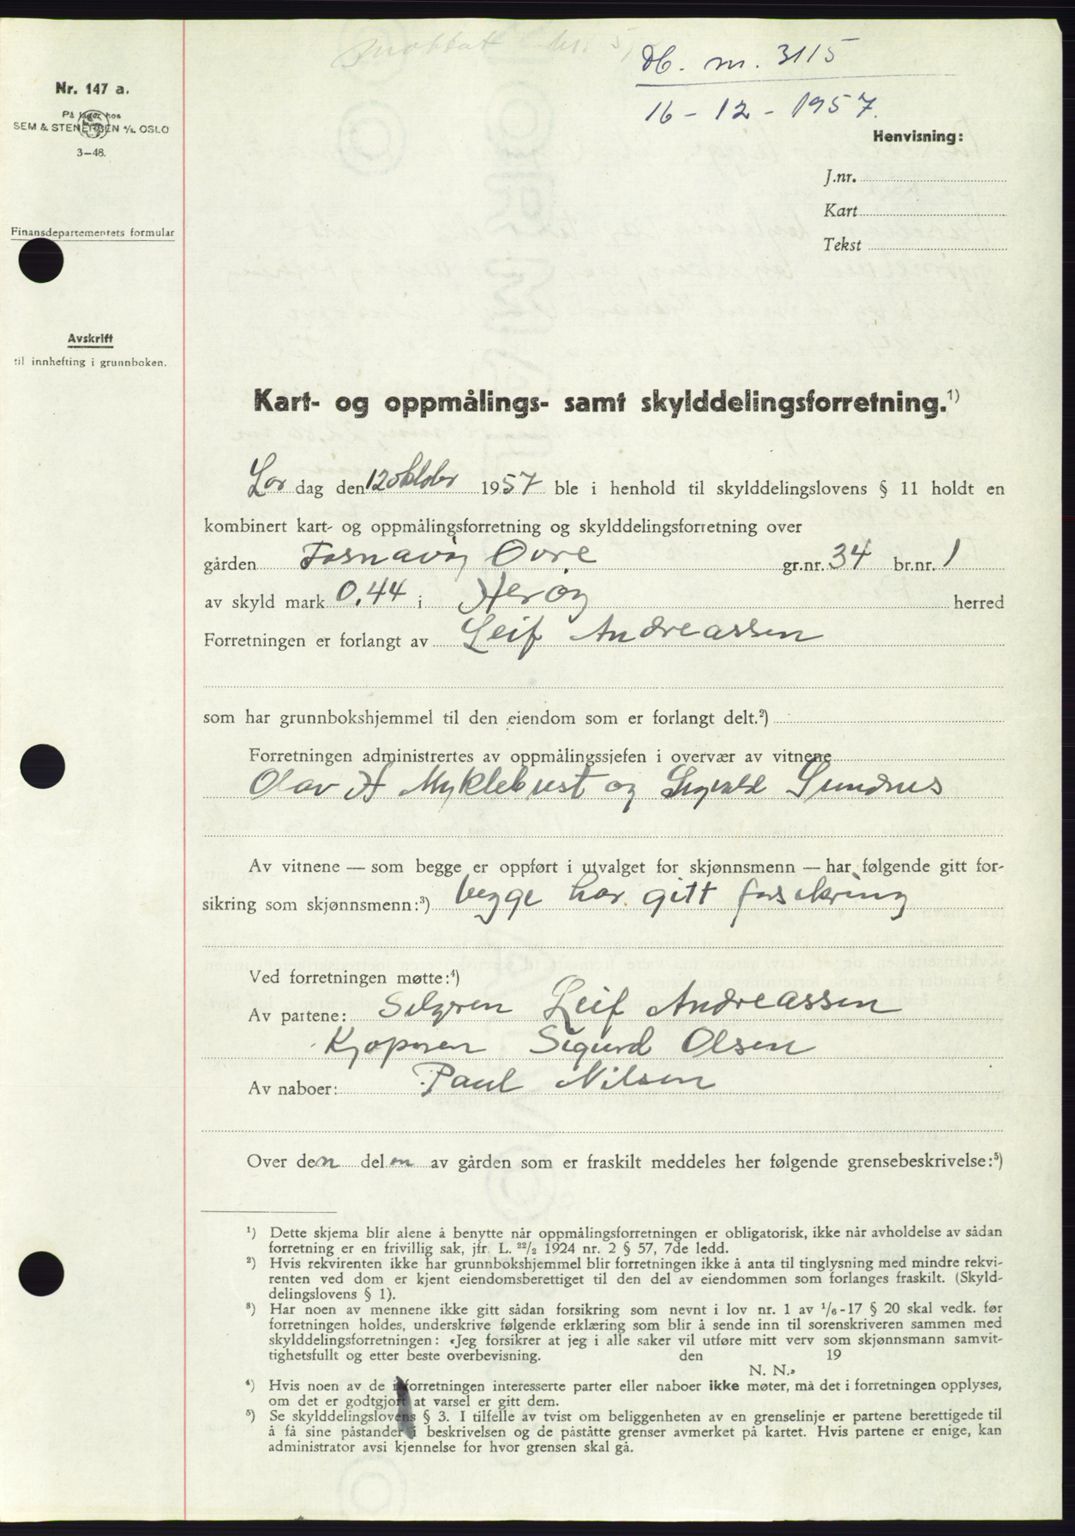 Db. nr. 3115
16 - 12 - 1957.
Nr. 147 a.
På lager hos
SEM & STENERSEN A/S. OSLO
3—48.
Henvisning:
J.nr.
Kart
Tekst
Finansdepartementets formular
Avskrift
til innhefting i grunnboken.
Kart- og oppmålings- samt skylddelingsforretning.¹)
Lør dag den 12 oktober 1957 ble i henhold til skylddelingslovens § 11 holdt en
kombinert kart- og oppmålingsforretning og skylddelingsforretning over
gården Fosnavåg Øvre gr.nr. 34 br.nr. 1
av skyld mark 0.44 i Herøy herred
Forretningen er forlangt av Leif Andreassen
som har grunnbokshjemmel til den eiendom som er forlangt delt.²)
Forretningen administrertes av oppmålingssjefen i overvær av vitnene
Olav A Myklebust og Sigvald Sundnes
Av vitnene — som begge er oppført i utvalget for skjønnsmenn — har følgende gitt for-
sikring som skjønnsmenn:³) begge har gitt forsikring
Ved forretningen møtte:⁴)
Av partene: Selgren Leif Andreassen
Kjøperen Sigurd Olsen
Av naboer: Paul Nilsen
Over den delen av gården som er fraskilt meddeles her følgende grensebeskrivelse:⁵)
¹) Dette skjema blir alene å benytte når oppmålingsforretningen er obligatorisk, ikke når avholdelse av sådan
forretning er en frivillig sak, jfr. L. ²²/₂ 1924 nr. 2 § 57, 7de ledd.
²) Hvis rekvirenten ikke har grunnbokshjemmel blir forretningen ikke å anta til tinglysning med mindre rekvi-
renten ved dom er kjent eiendomsberettiget til den del av eiendommen som forlanges fraskilt. (Skyld-
delingslovens § 1).
³) Har noen av mennene ikke gitt sådan forsikring som nevnt i lov nr. 1 av ¹/₆-17 § 20 skal vedk. før
forretningen holdes, underskrive følgende erklæring som blir å sende inn til sorenskriveren sammen med
skylddelingsforretningen: «Jeg forsikrer at jeg i alle saker vil utføre mitt verv som skjønnsmann samvit-
tighetsfullt og etter beste overbevisning. den 19
N. N.»
⁴) Hvis noen av de i forretningen interesserte parter eller naboer ikke møter, må det i forretningen opplyses,
om det er godtgjort at varsel er gitt dem.
⁵) Se skylddelingslovens § 3. I tilfelle av tvist om beliggenheten av en grenselinje er partene berettigede til
å få sine påstander i beskrivelsen og de påståtte grenser avmerket på kartet. Hvis partene er enige, kan
administrator avsi kjennelse for hvor grensen skal gå.